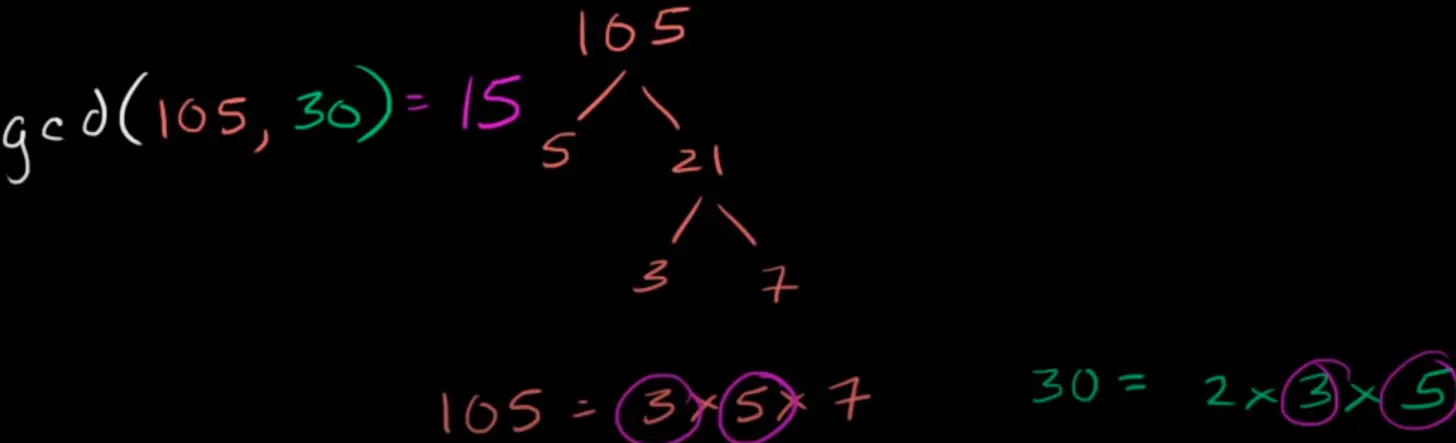 gcd(105, 30) = 15
105
5 21
3 7
105 = 3 × 5 × 7
30 = 2 × 3 × 5